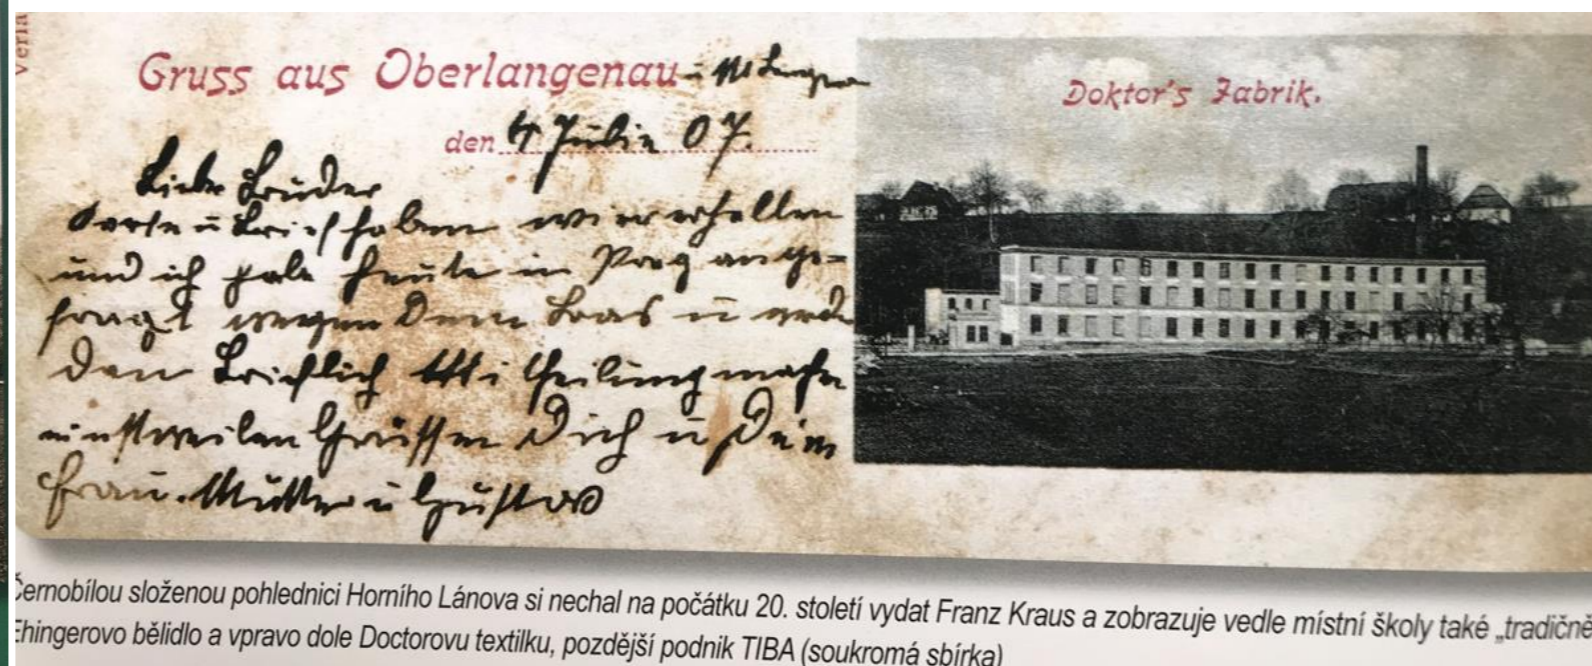 Verla
Gruss aus Oberlangenau
Doktor's Fabrik.
den 4 Julie 07.
Liebe Bruder
Karte u Brief haben wir erhalten
und ich habe heute in Prag ange=
fragt wegen Dem u
Dan Briflich Mittheilung machen
einstweilen Grüssen Dich u Deine
Frau. Mutter u Gustav
Černobílou složenou pohlednici Horního Lánova si nechal na počátku 20. století vydat Franz Kraus a zobrazuje vedle místní školy také „tradičně
Ehingerovo bělidlo a vpravo dole Doctorovu textilku, pozdější podnik TIBA (soukromá sbírka)